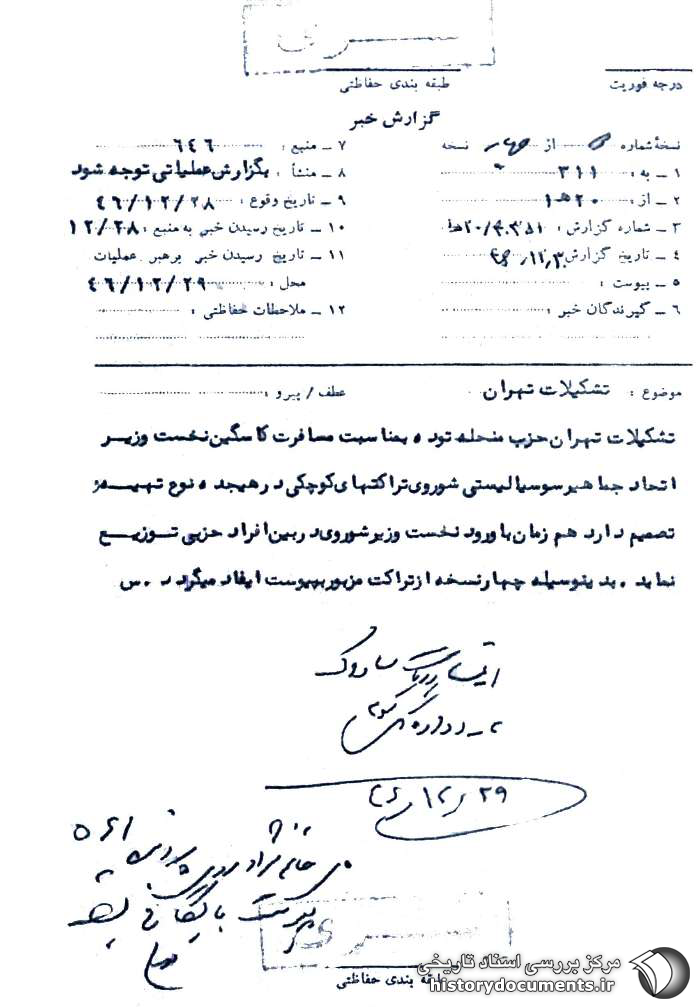 سری
درجه فوریت طبقه بندی حفاظتی
گزارش خبر
نسخهٔ شماره از چهار نسخه ۷ ـ منبع : ۶۴۶
۱ ـ به : ۳۱۱ ۸ ـ منشأ : بگزارش عملیاتی توجه شود
۲ ـ از : ۲۰ ه‍ ۱ ۹ ـ تاریخ وقوع : ۴۶/۱۲/۲۸
۳ ـ شماره گزارش : ۱۰ ـ تاریخ رسیدن خبر به منبع : ۱۲/۲۸
۴ ـ تاریخ گزارش ۱۱ ـ تاریخ رسیدن خبر برهبر عملیات
۵ ـ پیوست : محل : ۴۶/۱۲/۲۹
۶ ـ گیرندگان خبر : ۱۲ ـ ملاحظات حفاظتی :
موضوع : تشکیلات تهران عطف / پیرو :
تشکیلات تهران حزب منحله توده بمناسبت مسافرت کاسگین نخست وزیر
اتحاد جماهیر سوسیالیستی شوروی تراکتهای کوچکی در هیجده نوع تهیه و
تصمیم دارد هم زمان با ورود نخست وزیر شوروی در بین افراد حزبی توزیع
نماید . بدینوسیله چهار نسخه از تراکت مزبور بپیوست ایفاد میگردد . س
۲۹/۱۲/۴۶
سری
طبقه بندی حفاظتی
مرکز بررسی اسناد تاریخی
historydocuments.ir